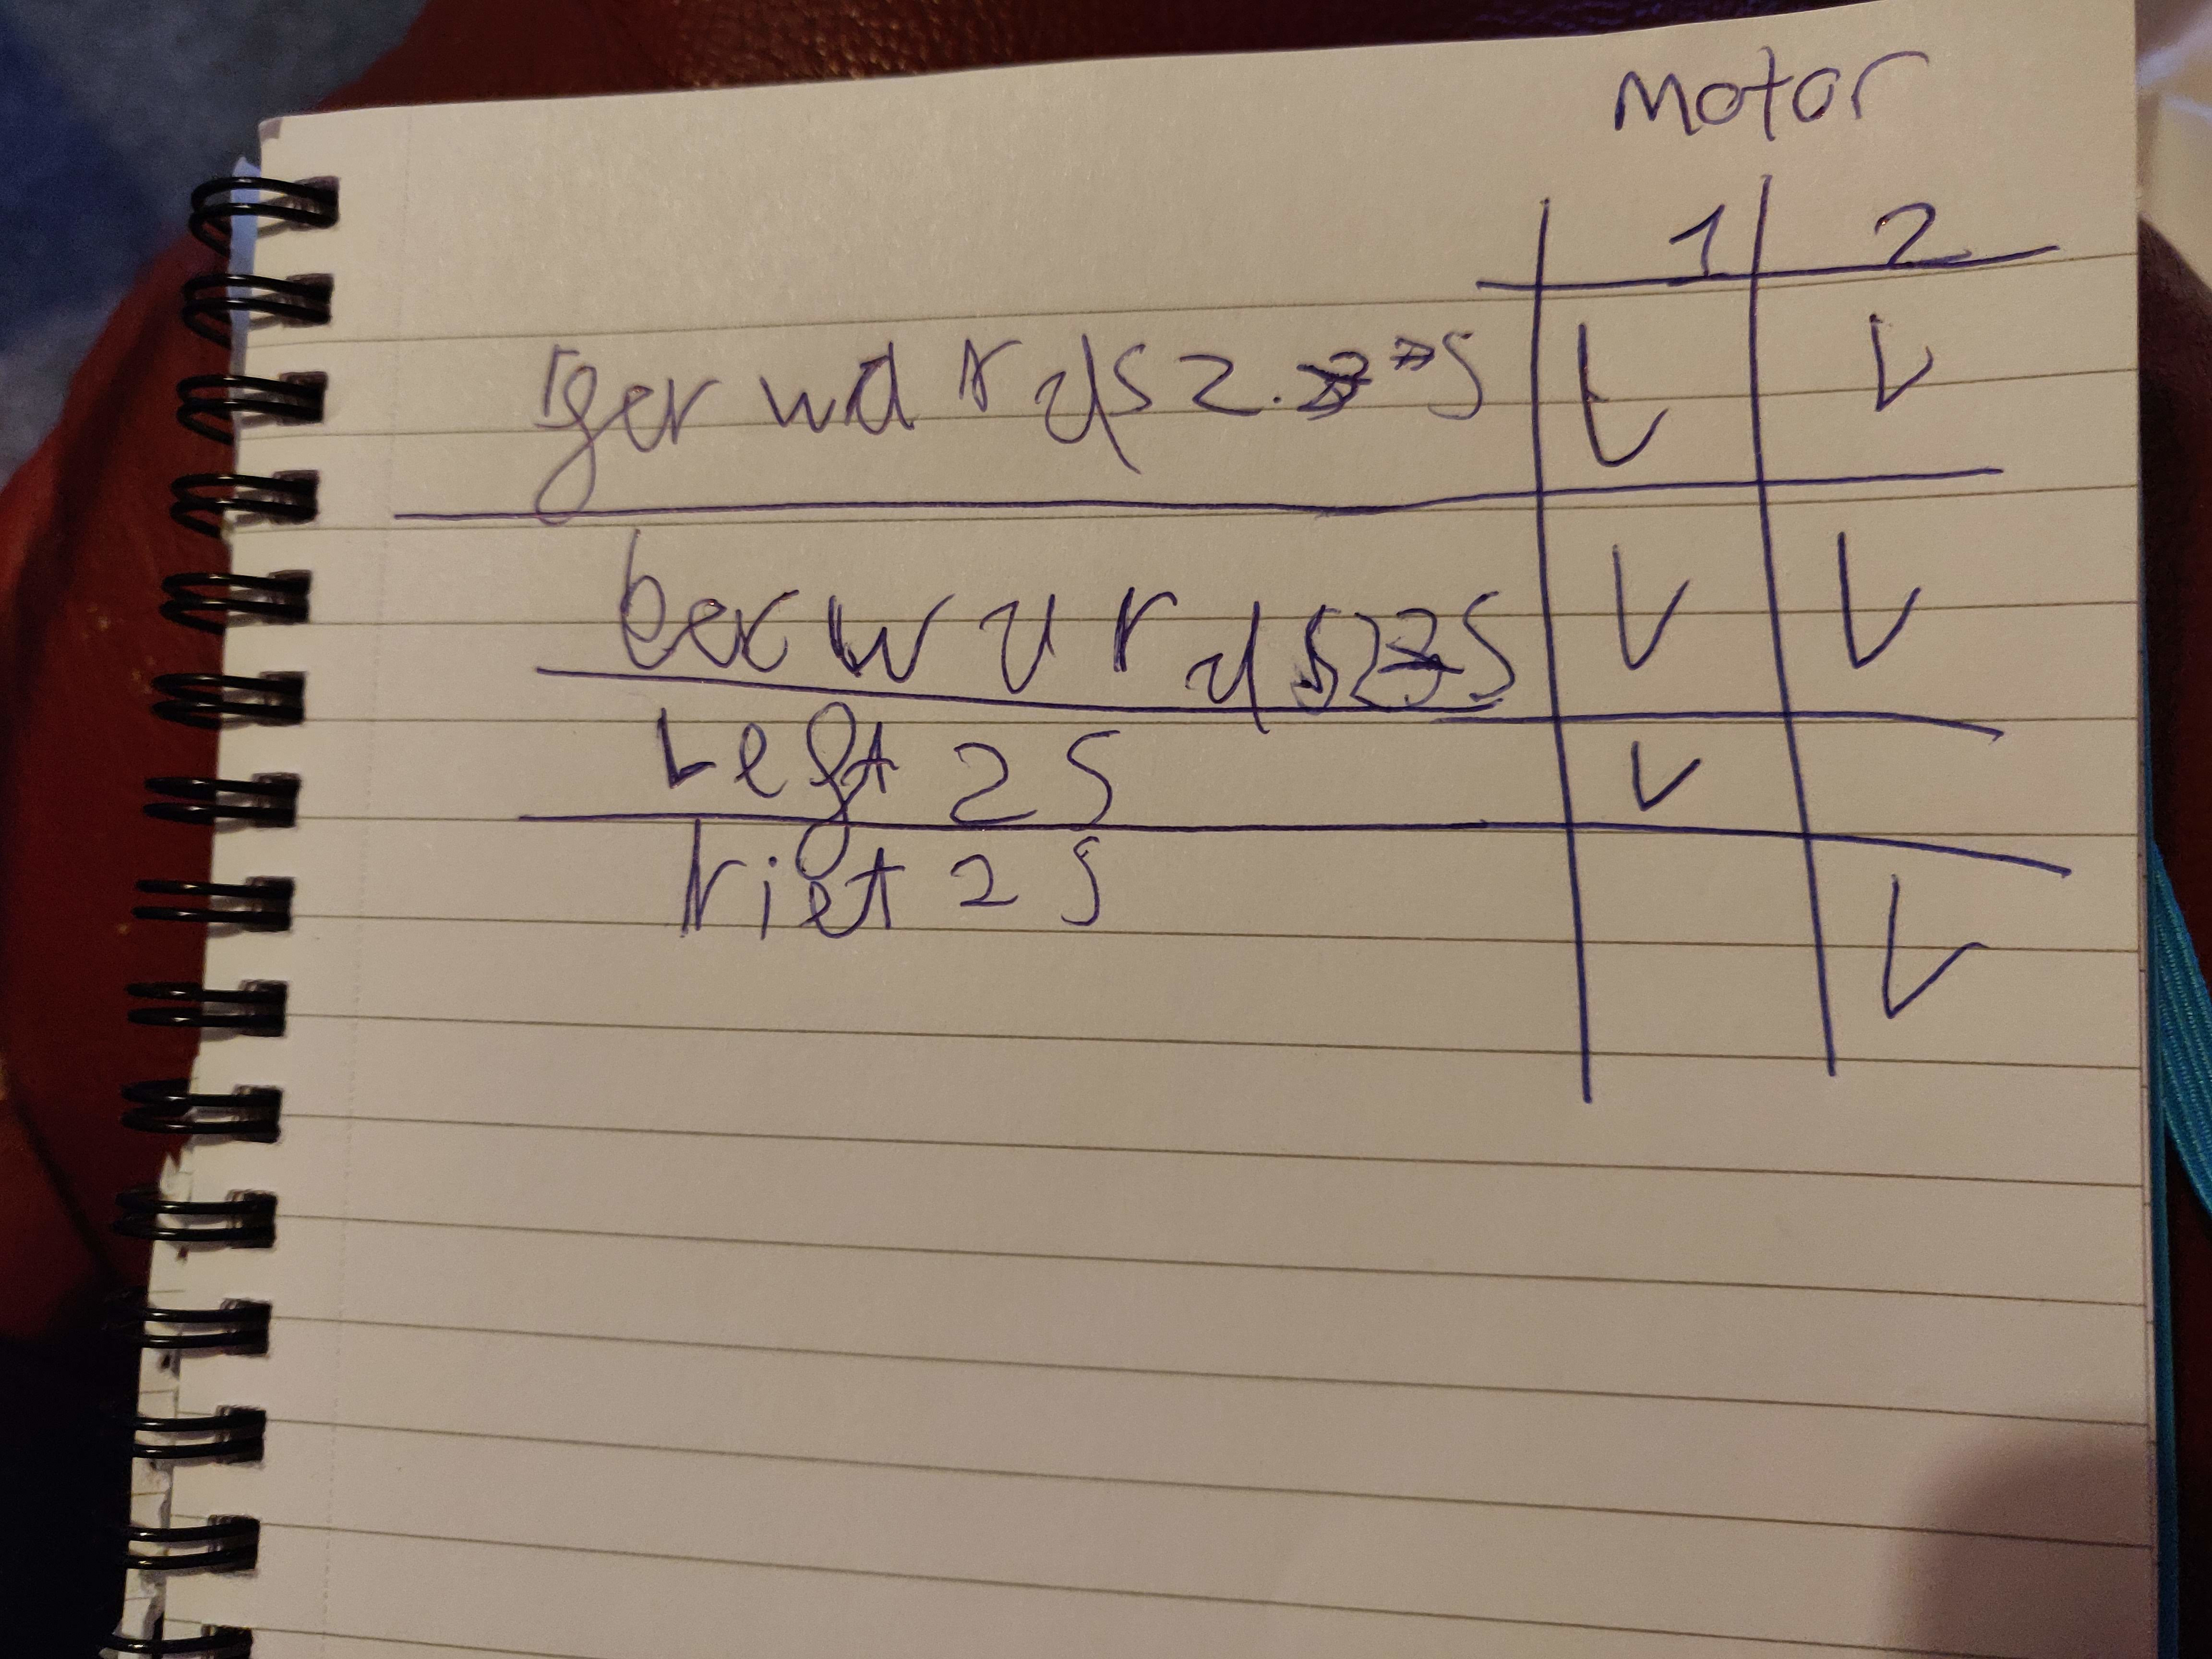 Motor
1 2
ferwards 2. s
becwards 2 s
Left 2 s
riet 2 s